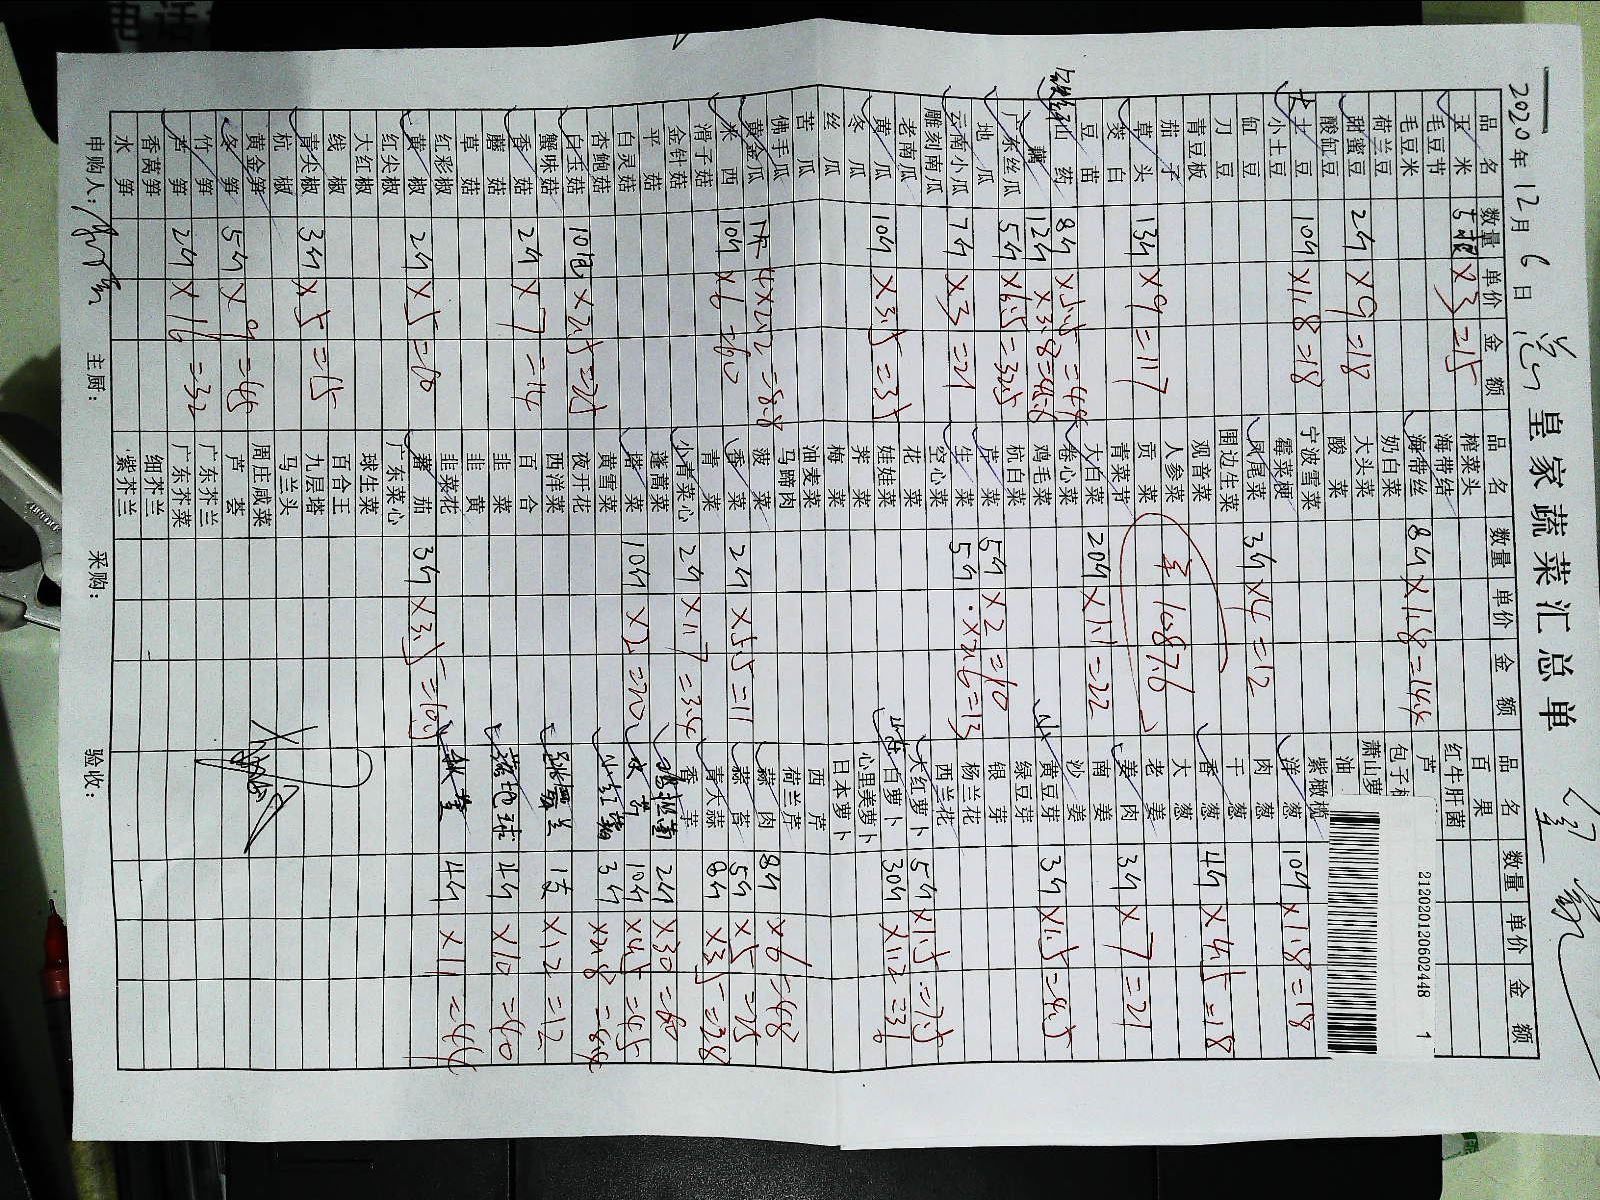 电话
2020年12月6日
皇家蔬菜汇总单
212020120602448 1
品名 数量 单价 金额 品名 数量 单价 金额 品名 数量 单价 金额
玉米 5根 ×3 =15
毛豆节
毛豆米
荷兰豆
甜蜜豆 2斤 ×9 =18
酸缸豆
小土豆
土豆 10斤 ×1.8 =18
缸豆
刀豆
青豆板
茄子
草头 13斤 ×9 =117
茭白
豆苗
山药 8斤 ×5.5 =44
藕 12斤 ×3.8 =45.6
广东丝瓜 5斤 ×6.5 =32.5
地瓜
云南小瓜 7斤 ×3 =21
雕刻南瓜
老南瓜
黄瓜 10斤 ×3.5 =35
冬瓜
丝瓜
苦瓜
佛手瓜
黄金瓜 4×2.2 =8.8
米西 10斤 ×6 =60
滑子菇
金针菇
平菇
白灵菇
杏鲍菇
白玉菇 10包 ×2.5 =25
蟹味菇
香菇 2斤 ×7 =14
蘑菇
草菇
红彩椒
黄椒 2斤 ×5 =10
红尖椒
大红椒
线椒
青尖椒 3斤 ×5 =15
杭椒
黄金笋
冬笋 5斤 ×9 =45
竹笋
芦笋 2斤 ×16 =32
香莴笋
水笋
榨菜头
海带结
海带丝 8斤 ×1.8 =14.4
奶白菜
大头菜
酸菜
宁波雪菜
霉菜梗
凤尾菜 3斤 ×4 =12
围边生菜
观音菜
人参菜
贡菜
青菜节
大白菜 20斤 ×1.1 =22
卷心菜
鸡毛菜
杭白菜
芹菜 5斤 ×2 =10
生菜 5斤 ×2.6 =13
空心菜
花菜
娃娃菜
荠菜
梅菜
油麦菜
马蹄肉
菠菜
香菜 2斤 ×5.5 =11
青菜
小青菜心 2斤 ×1.7 =3.4
蓬蒿菜
塔菜 10斤 ×2 =20
黄雪菜
夜开花
西洋菜
百合
韭菜
韭黄
韭菜花
蕃茄 3斤 ×3.5 =10.5
广东菜心
球生菜
百合王
九层塔
马兰头
周庄咸菜
芦荟
广东芥兰
广东芥菜
细芥兰
紫芥兰
1087.6
百果
红牛肝菌
芦
包子
萧山萝
油
紫橄榄
洋葱 10斤 ×1.8 =18
肉葱
干葱
香葱 4斤 ×4.5 =18
大葱
老姜
姜肉 3斤 ×7 =21
南姜
沙姜
黄豆芽 3斤 ×1.5 =4.5
绿豆芽
银芽
杨兰花
西兰花
大红萝卜 5斤 ×1.5 =7.5
白萝卜 30斤 ×1.2 =36
心里美萝卜
日本萝卜
西芹
荷兰芹
蒜肉 8斤 ×6 =48
蒜苔 5斤 ×5 =25
青大蒜 8斤 ×3.5 =28
香芋
2斤 ×30 =60
10斤 ×4.5 =45
小红 3斤 ×2.8 =8.4
×12 =12
地球 4斤 ×10 =40
4斤 ×11 =44
申购人: 主厨: 采购: 验收: